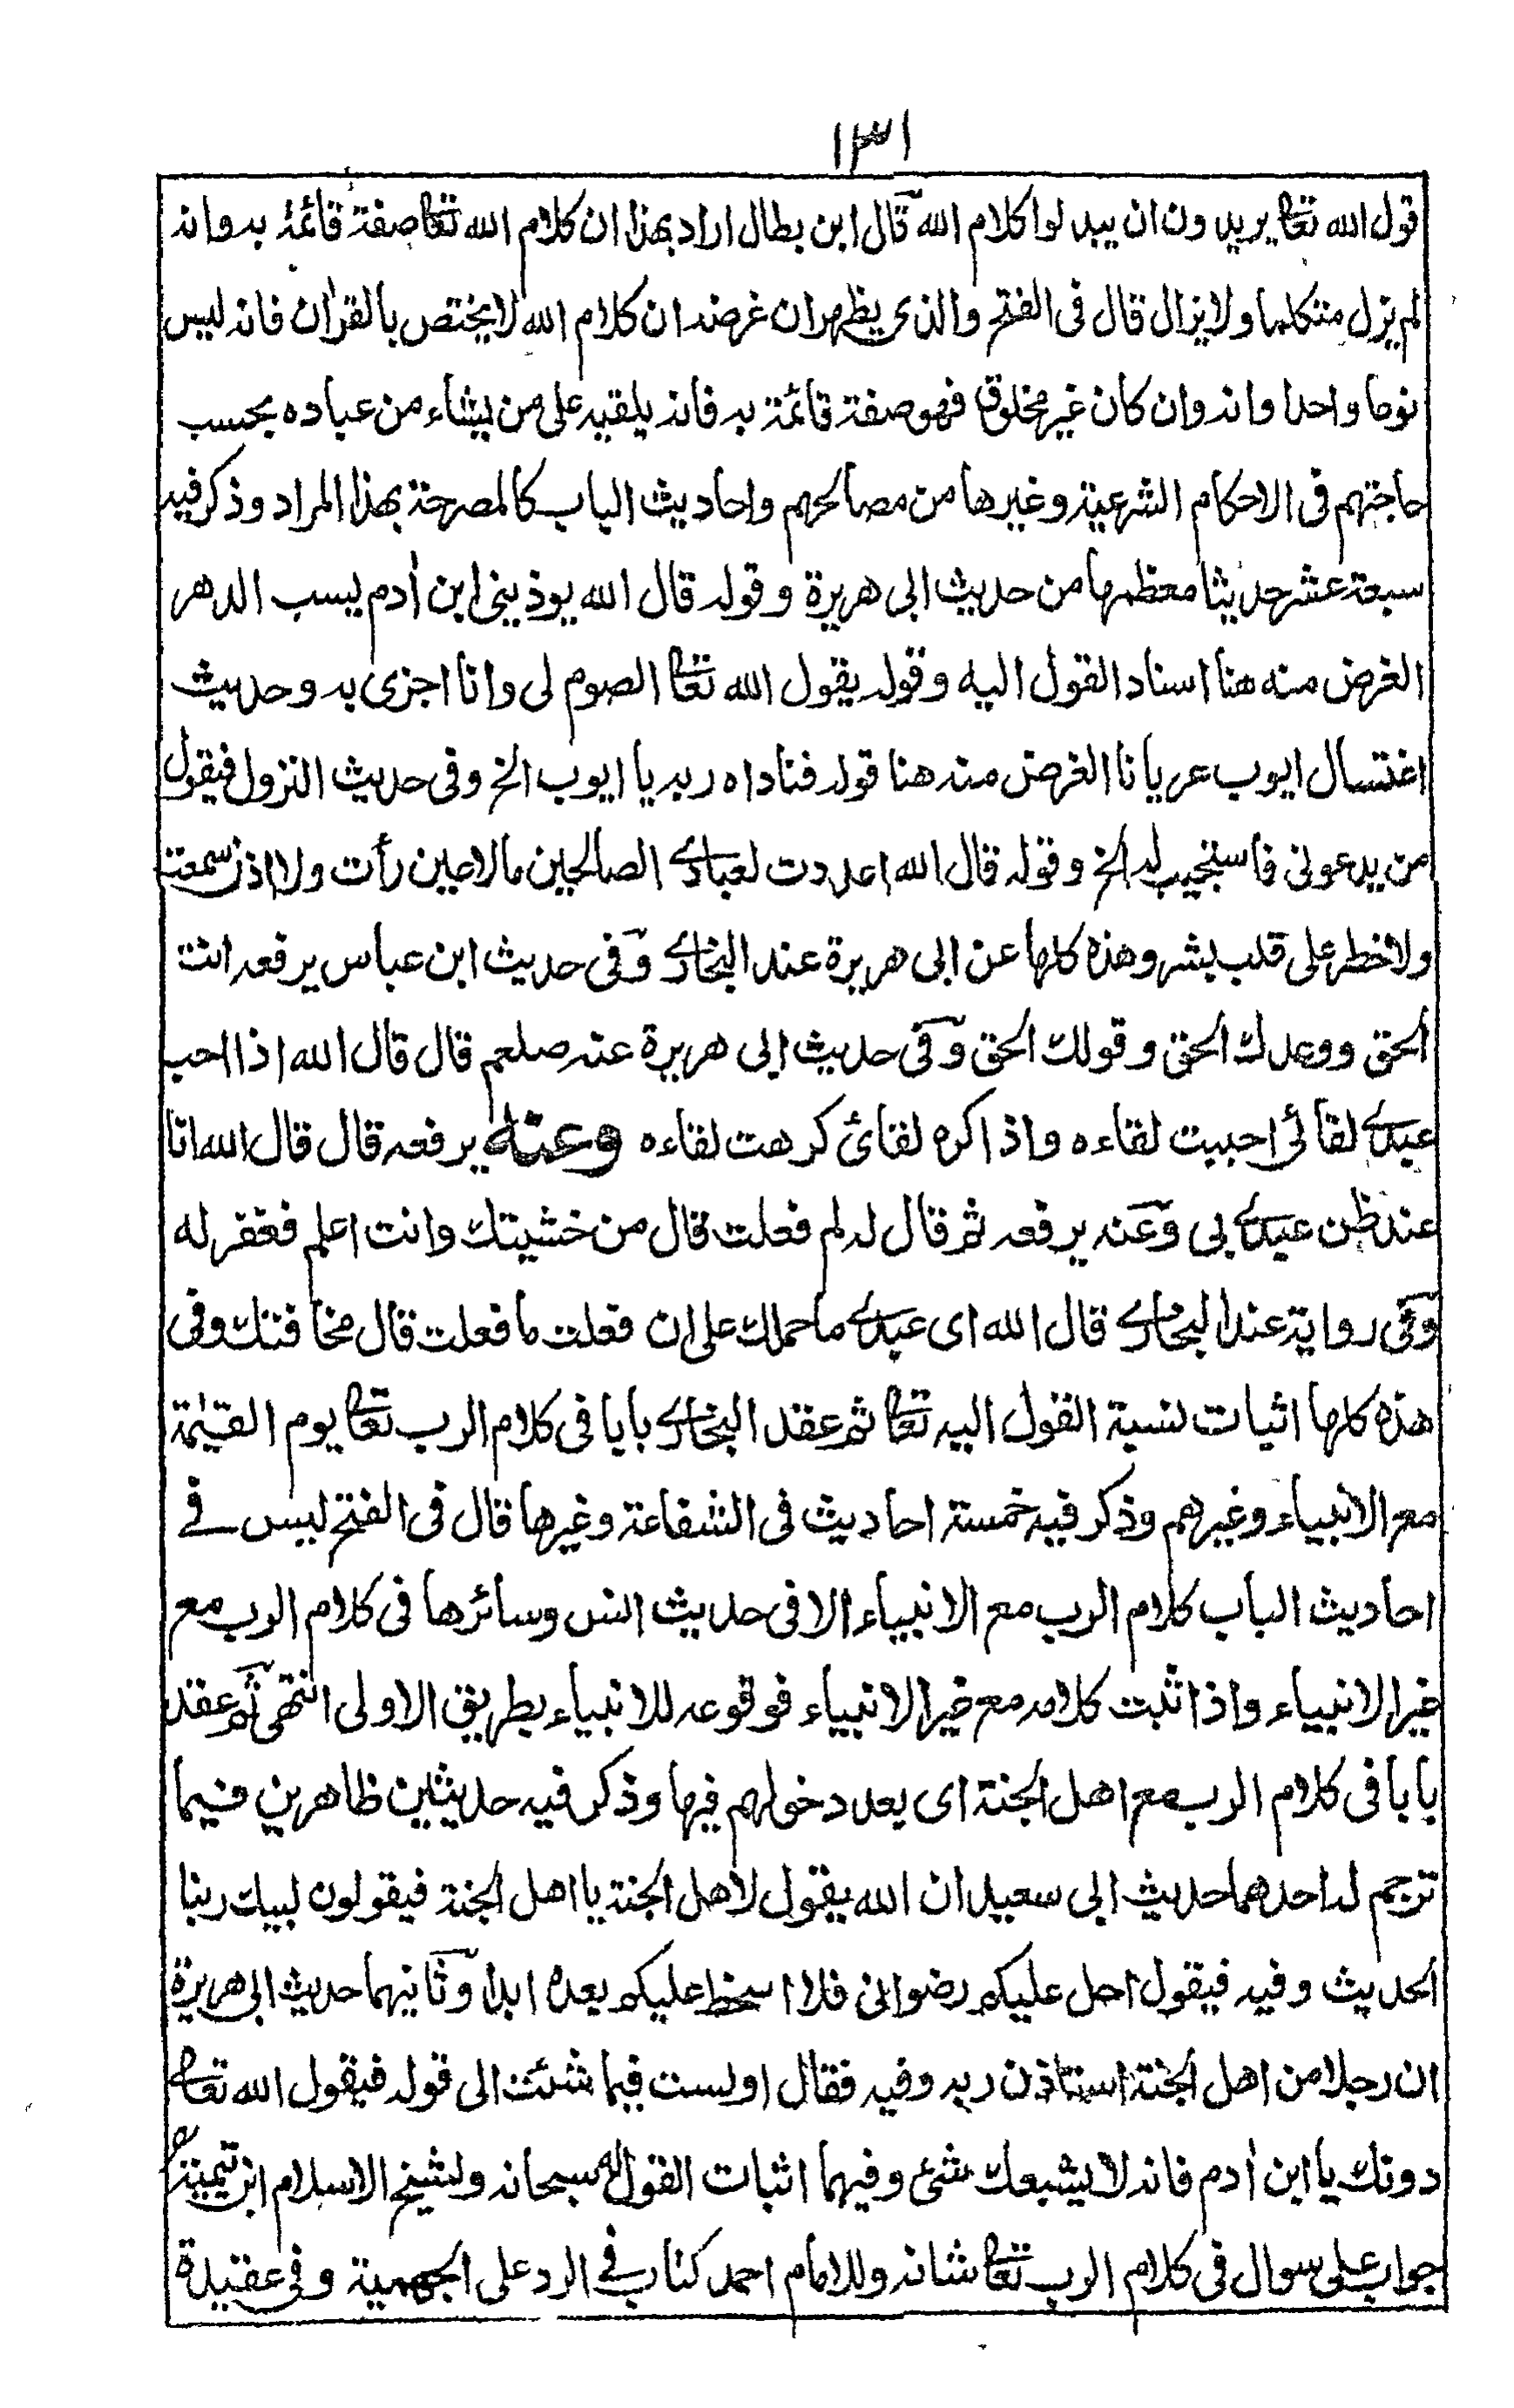 ١٣١
قول الله تعا يريدون ان يبدلوا كلام الله قال ابن بطال اراد بهذا ان كلام الله تعا صفة قائمة به وانه
لم يزل متكلما ولا يزال قال فى الفتح والذى يظهر ان غرضه ان كلام الله لا يختص بالقرآن فانه ليس
نوعا واحدا وانه وان كان غير مخلوق فهو صفة قائمة به فانه يلقيه على من يشاء من عباده بحسب
حاجتهم فى الاحكام الشرعية وغيرها من مصالحهم واحاديث الباب كالمصرحة بهذا المراد وذكر فيه
سبعة عشر حديثا معظمها من حديث ابى هريرة وقوله قال الله يوذينى ابن اٰدم يسب الدهر
الغرض منه هنا اسناد القول اليه وقوله يقول الله تعا الصوم لى وانا اجزى به وحديث
اغتسال ايوب عريانا الغرض منه هنا قوله فناداه ربه يا ايوب الخ وفى حديث النزول فيقول
من يدعونى فاستجيب له الخ وقوله قال الله اعددت لعبادى الصالحين مالا عين رأت ولا اذن سمعت
ولا خطر على قلب بشر وهذه كلها عن ابى هريرة عند البخارى وفى حديث ابن عباس يرفعه انت
الحق ووعدك الحق وقولك الحق وفى حديث ابى هريرة عنه صلعم قال قال الله اذا احب
عبدى لقائى احببت لقاءه واذا كره لقائى كرهت لقاءه وعنه يرفعه قال قال الله انا
عند ظن عبدى بى وعنه يرفعه ثم قال له لم فعلت قال من خشيتك وانت اعلم فغفر له
وفى رواية عند البخارى قال الله اى عبدى ما حملك على ان فعلت ما فعلت قال مخافتك وفى
هذه كلها اثبات نسبة القول اليه تعا ثم عقد البخارى بابا فى كلام الرب تعا يوم القيٰمة
مع الانبياء وغيرهم وذكر فيه خمسة احاديث فى الشفاعة وغيرها قال فى الفتح ليس فى
احاديث الباب كلام الرب مع الانبياء الا فى حديث انس وسائرها فى كلام الرب مع
غير الانبياء واذا ثبت كلامه مع غير الانبياء فوقوعه للانبياء بطريق الاولى انتهى ثم عقد
بابا فى كلام الرب مع اهل الجنة اى بعد دخولهم فيها وذكر فيه حديثين ظاهرين فيما
ترجم له احدهما حديث ابى سعيد ان الله يقول لاهل الجنة يا اهل الجنة فيقولون لبيك ربنا
الحديث وفيه فيقول احل عليكم رضوانى فلا اسخط عليكم بعده ابدا وثانيهما حديث ابى هريرة
ان رجلا من اهل الجنة استاذن ربه وفيه فقال اولست فيما شئت الى قوله فيقول الله تعا
دونك يا ابن اٰدم فانه لا يشبعك شئ وفيهما اثبات القول له سبحانه ولشيخ الاسلام ابن تيمية رح
جواب على سوال فى كلام الرب تعا شانه وللامام احمد كتاب فى الرد على الجهمية وفى عقيدة